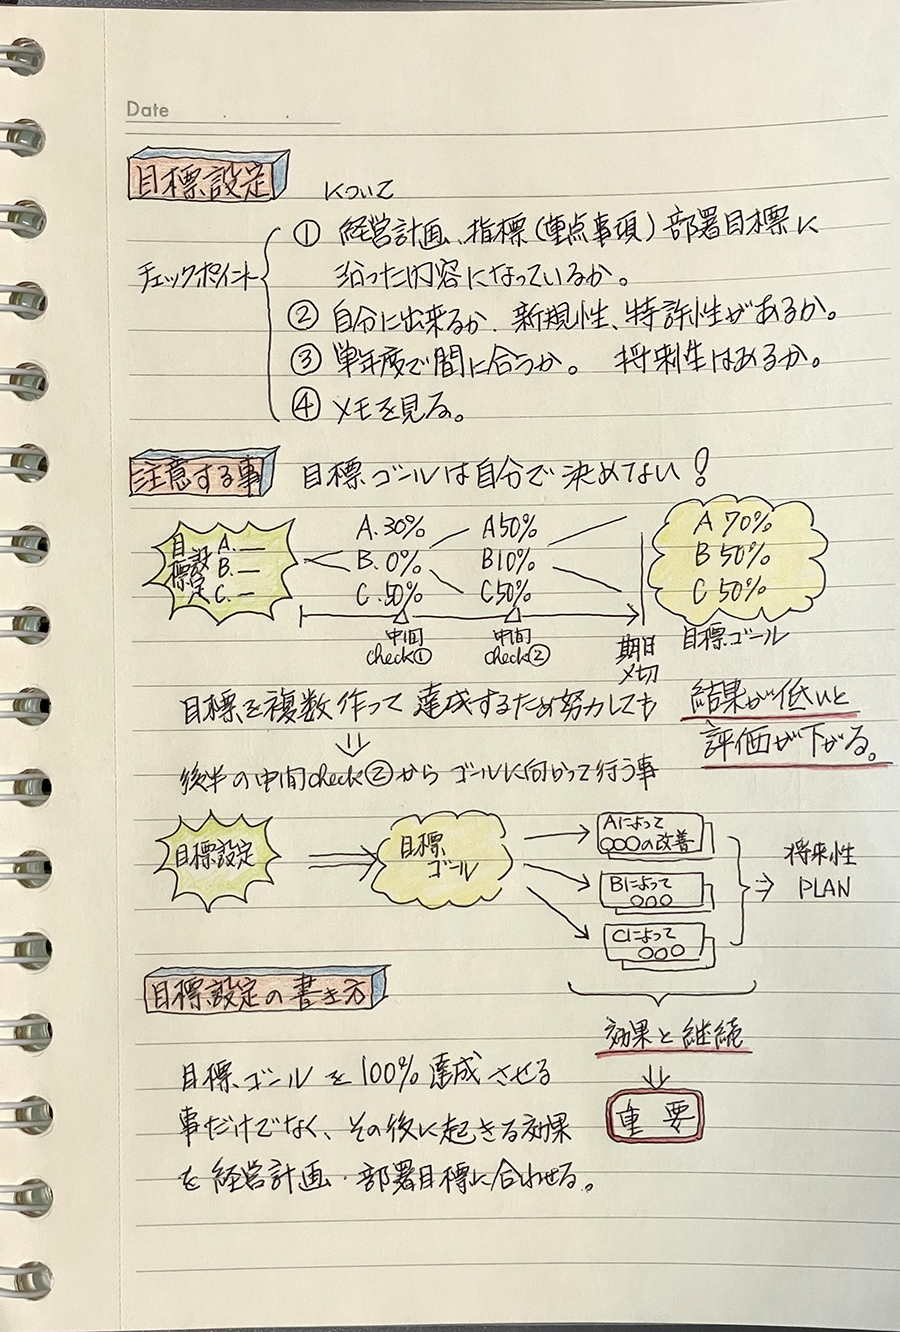 Date
目標設定 について
チェックポイント
① 経営計画、指標(重点事項)部署目標に
沿った内容になっているか。
② 自分に出来るか、新規性、特許性があるか。
③ 単年度で間に合うか。 将来性はあるか。
④ メモを見る。
注意する事 目標ゴールは自分で決めてない!
目標設定 A.― B.― C.―
A.30% A50% A 70%
B.0% B10% B 50%
C.50% C50% C 50%
中間check① 中間check② 期日〆切 目標ゴール
目標を複数作って達成するため努力しても 結果が低いと
評価が下がる。
⇓
後半の中間check②からゴールに向かって行う事
目標設定 ⇒ 目標ゴール
Aによって
○○○の改善
Bによって
○○○
Cによって
○○○
⇒ 将来性
PLAN
効果と継続
⇓
重要
目標設定の書き方
目標ゴールを100%達成させる
事だけでなく、その後に起きる効果
を経営計画・部署目標に合わせる。